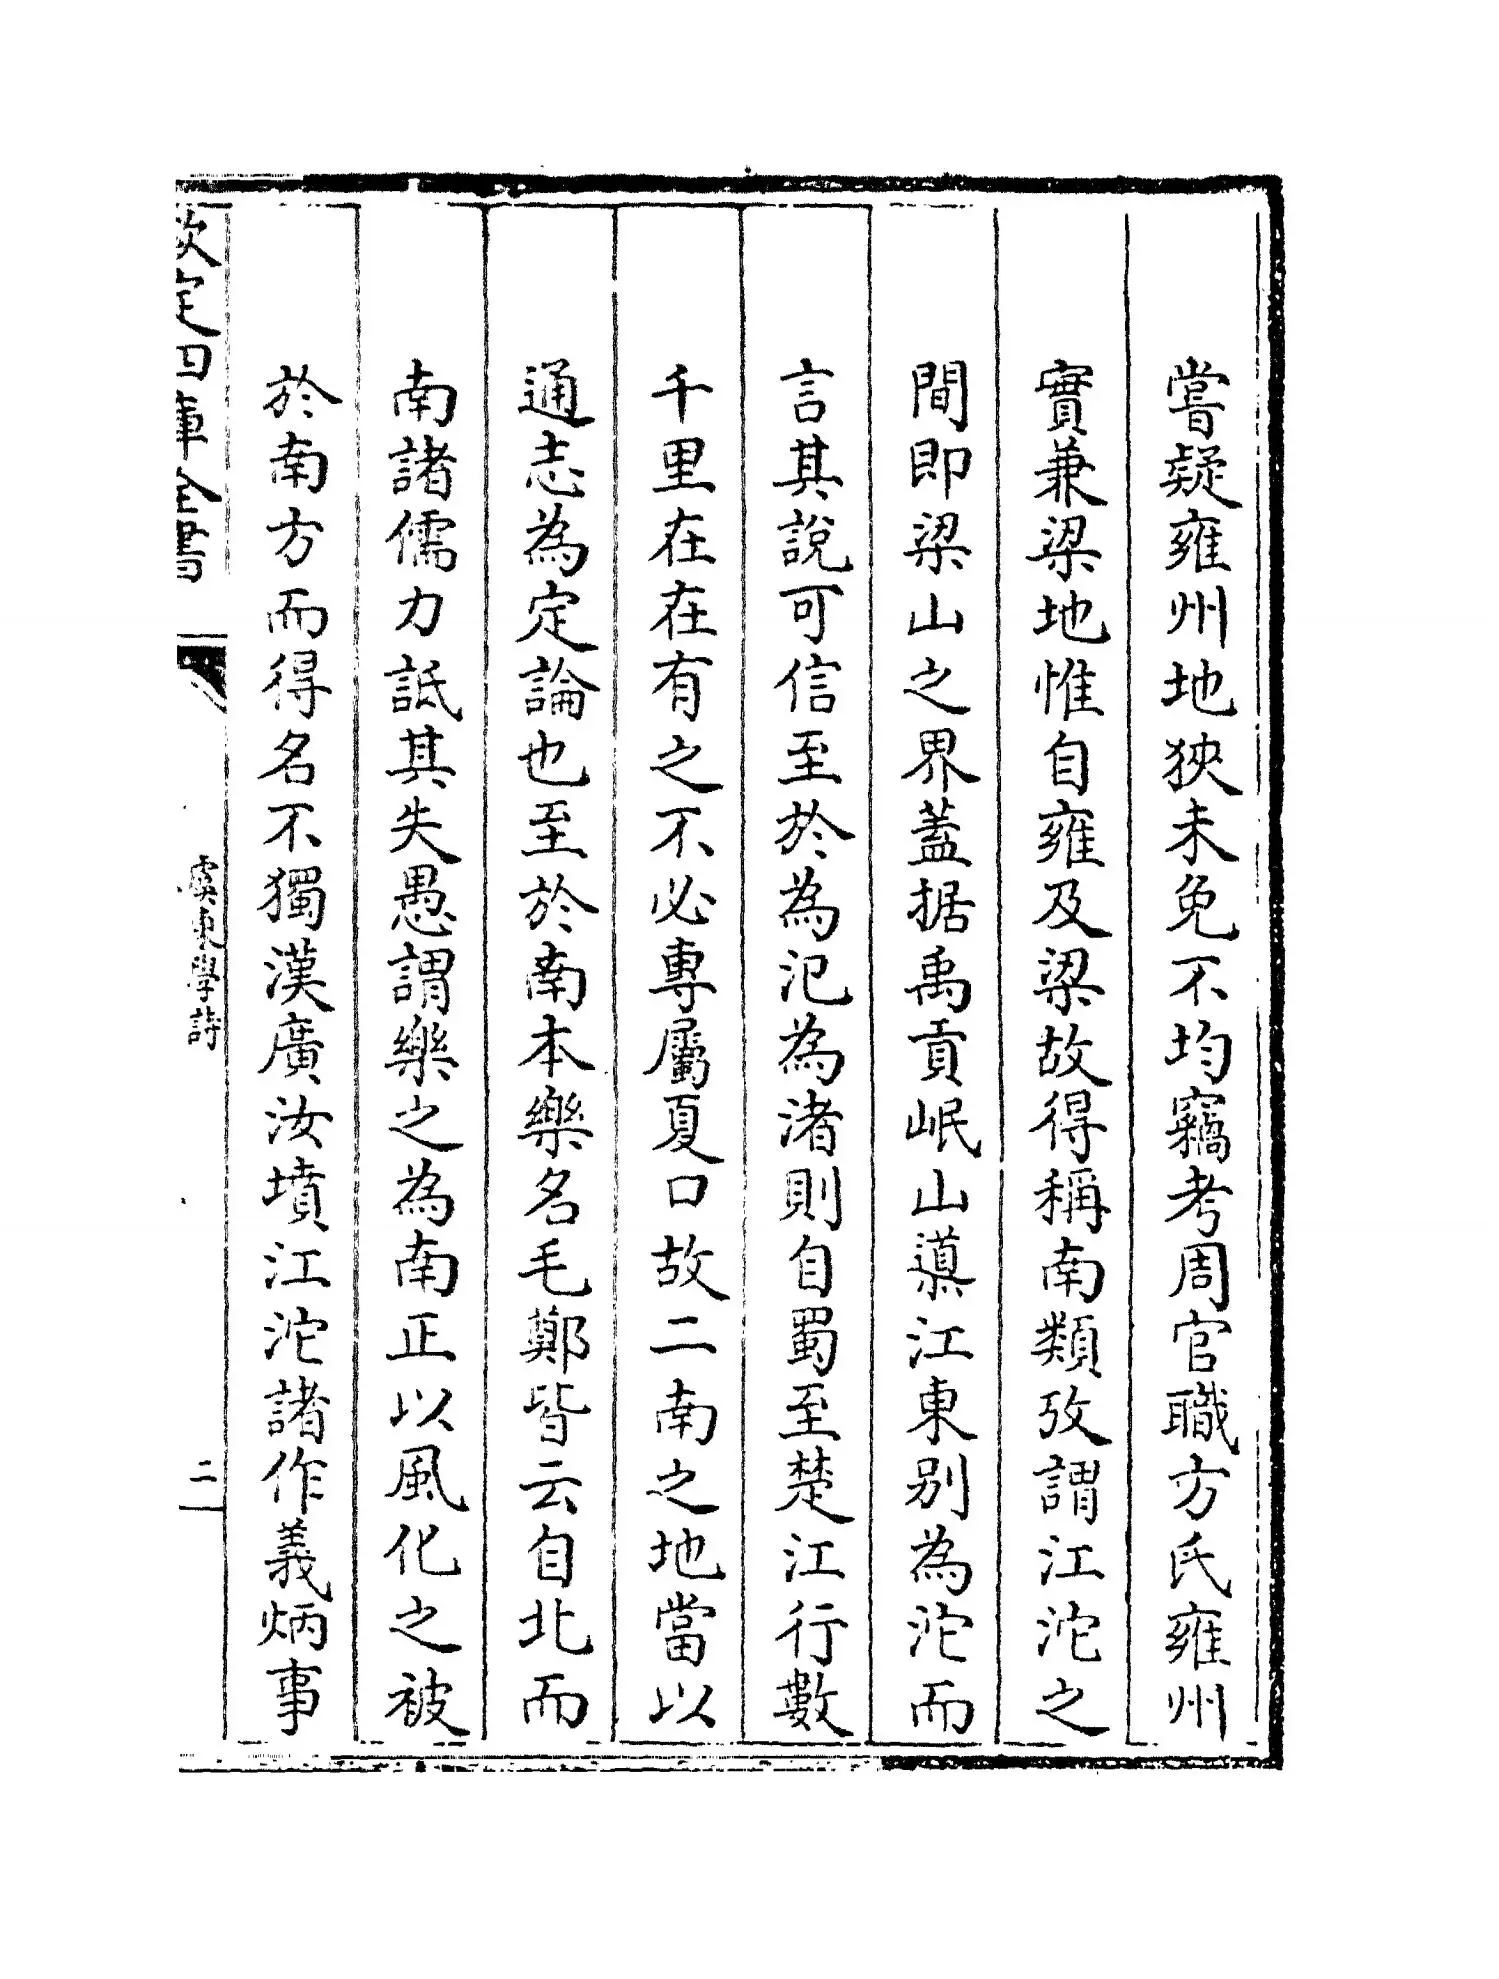 嘗疑雍州地狹未免不均竊考周官職方氏雍州
實兼梁地惟自雍及梁故得稱南類攷謂江沱之
間即梁山之界蓋据禹貢岷山導江東別為沱而
言其說可信至於為汜為渚則自蜀至楚江行數
千里在在有之不必專屬夏口故二南之地當以
通志為定論也至於南本樂名毛鄭皆云自北而
南諸儒力詆其失愚謂樂之為南正以風化之被
於南方而得名不獨漢廣汝墳江沱諸作義炳事
欽定四庫全書
虞東學詩
二